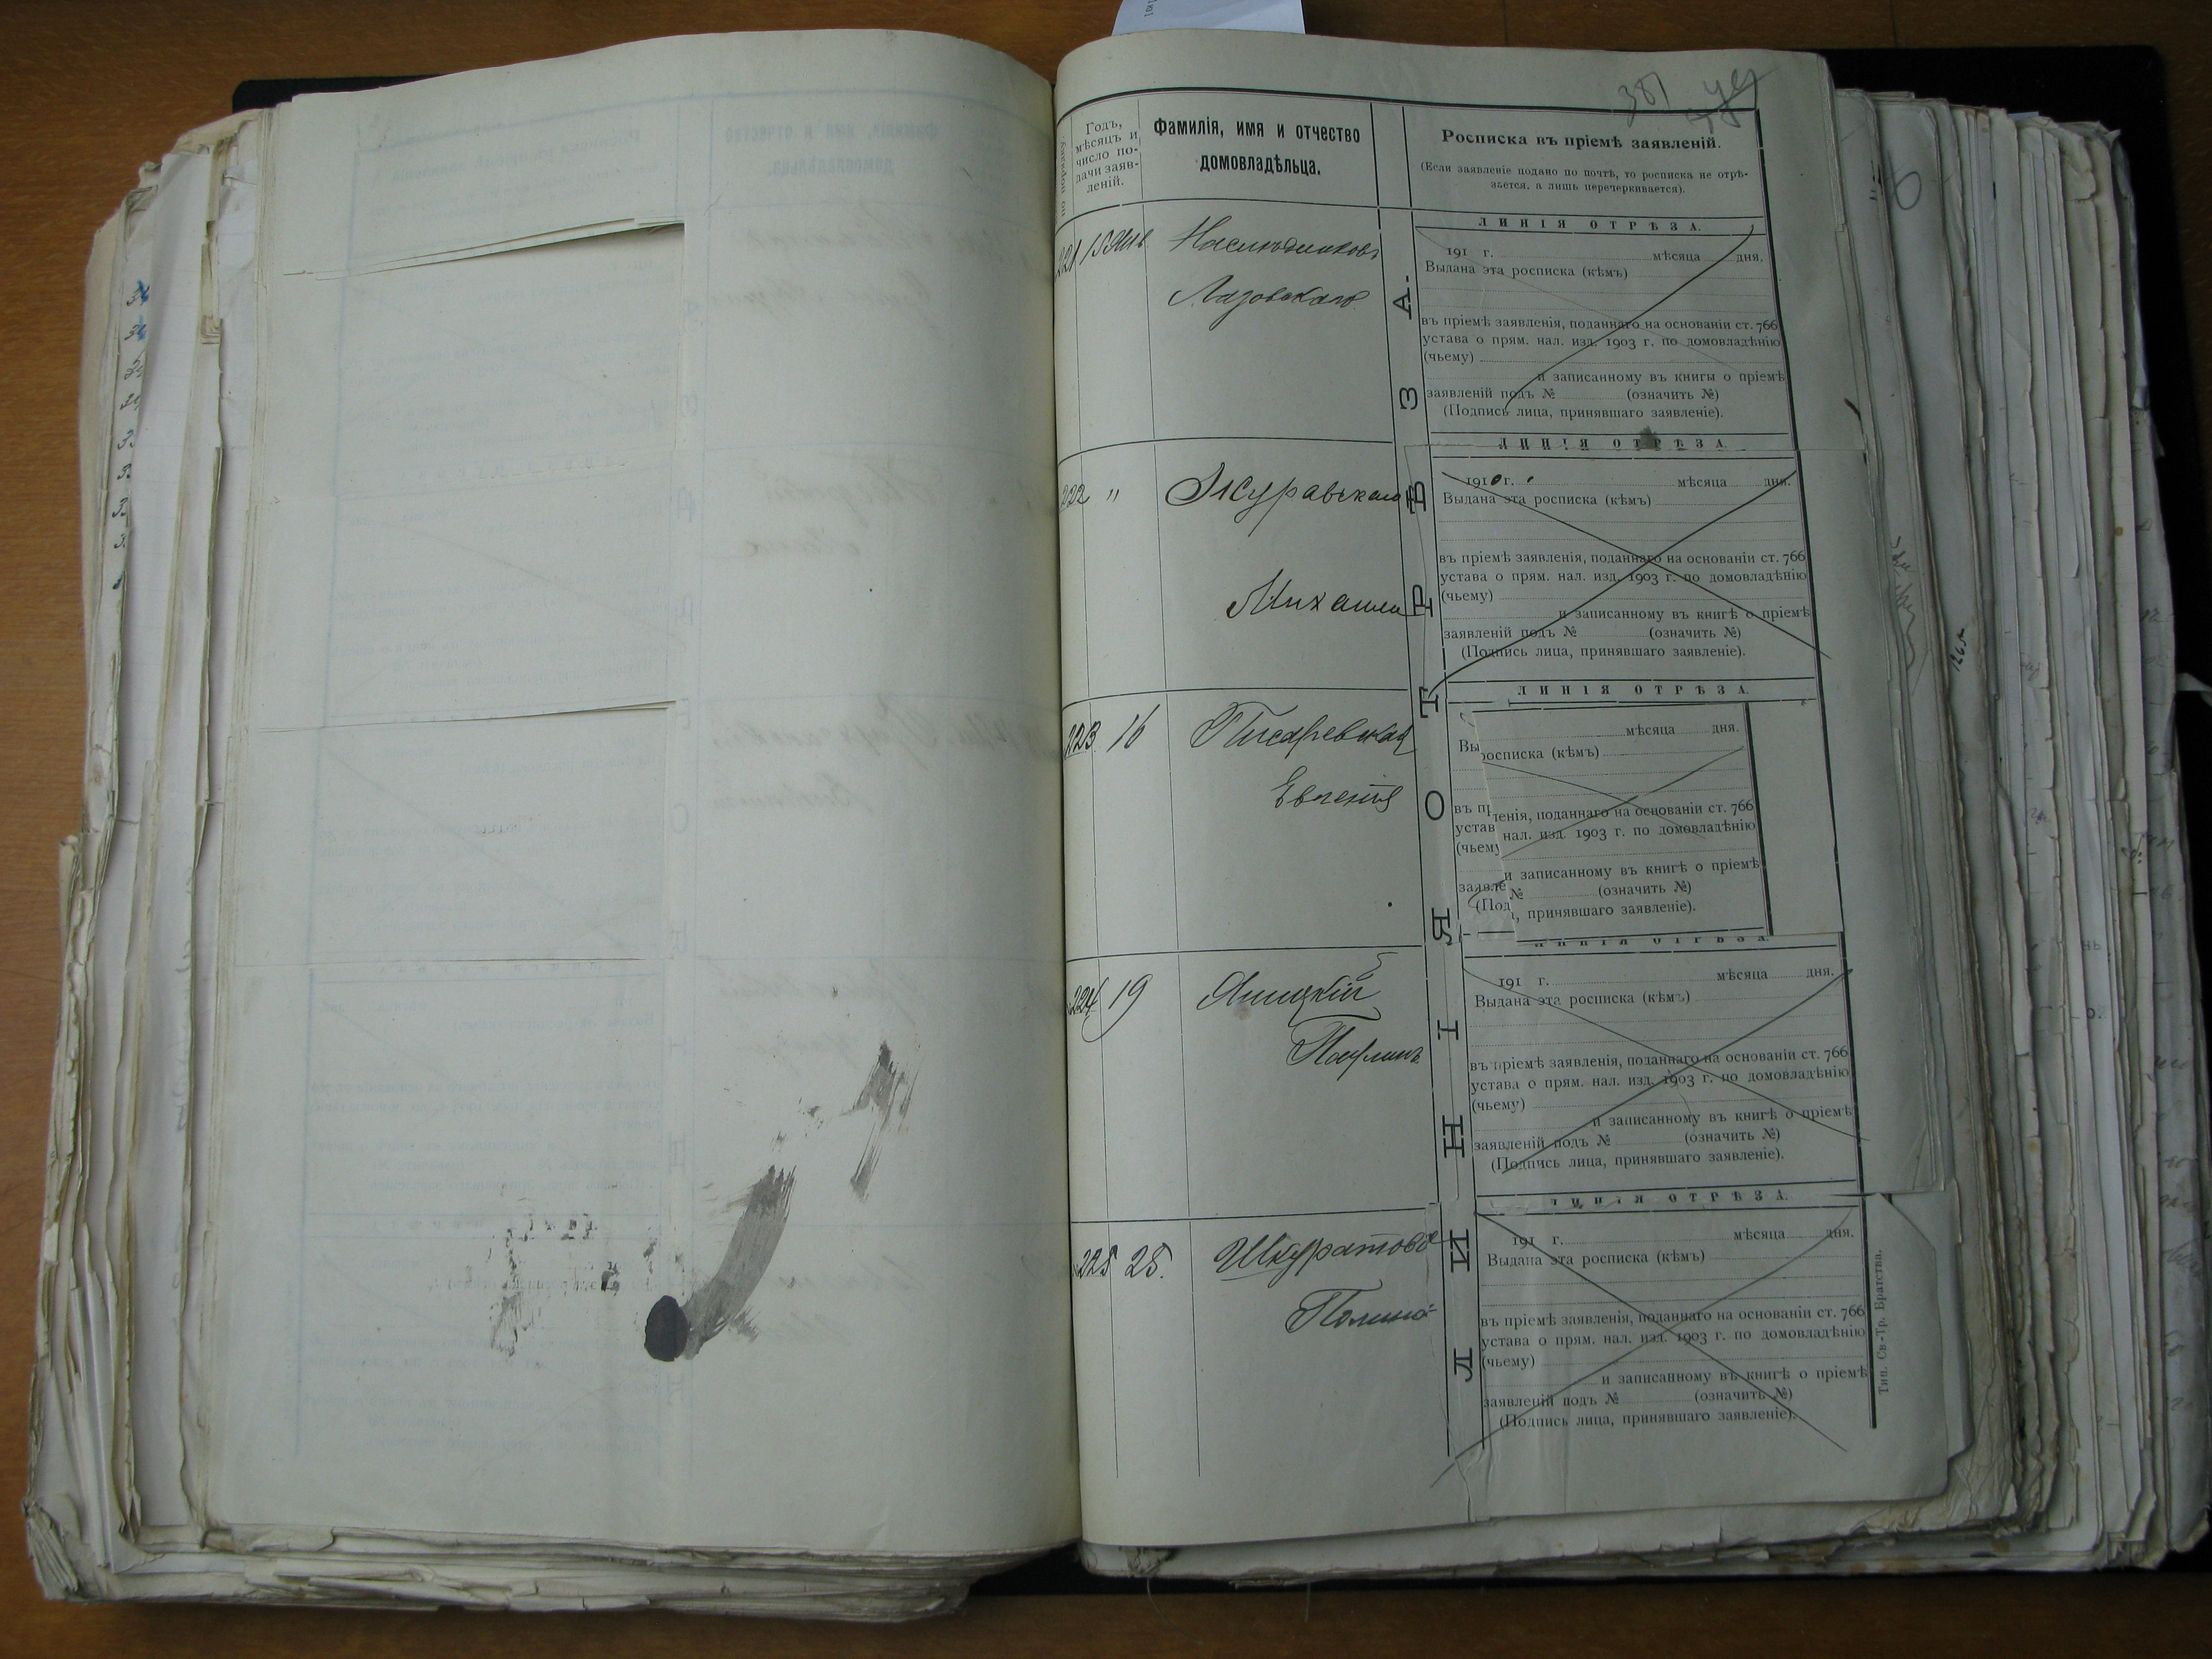 381
по порядку
Годъ,
мѣсяцъ и
число по-
дачи заяв-
леній.
Фамилія, имя и отчество
домовладѣльца.
Росписка въ пріемѣ заявленій.
(Если заявленіе подано по почтѣ, то росписка не отрѣ-
зается, а лишь перечеркивается).
ЛИНІЯ ОТРѢЗА.
ЛИНІЯ ОТРѢЗА.
221 15 Янв. Наслѣдниковъ
Лазовскаго
191 г. мѣсяца дня.
Выдана эта росписка (кѣмъ)
въ пріемѣ заявленія, поданнаго на основаніи ст. 766
устава о прям. нал. изд. 1903 г. по домовладѣнію
(чьему)
и записанному въ книгы о пріемѣ
заявленій подъ № (означить №)
(Подпись лица, принявшаго заявленіе).
ЛИНІЯ ОТРѢЗА.
222 " Журавскаго
Михаила
1910 г. мѣсяца дня.
Выдана эта росписка (кѣмъ)
въ пріемѣ заявленія, поданнаго на основаніи ст. 766
устава о прям. нал. изд. 1903 г. по домовладѣнію
(чьему)
и записанному въ книгѣ о пріемѣ
заявленій подъ № (означить №)
(Подпись лица, принявшаго заявленіе).
ЛИНІЯ ОТРѢЗА.
223 16 Писаревская
Евгенія
мѣсяца дня.
Вы росписка (кѣмъ)
въ пр ленія, поданнаго на основаніи ст. 766
устав нал. изд. 1903 г. по домовладѣнію
(чьему
и записанному въ книгѣ о пріемѣ
заявле № (означить №)
(Под , принявшаго заявленіе).
ЛИНІЯ ОТРѢЗА.
224 19 Яницкій
Паулинъ
191 г. мѣсяца дня.
Выдана эта росписка (кѣмъ)
въ пріемѣ заявленія, поданнаго на основаніи ст. 766
устава о прям. нал. изд. 1903 г. по домовладѣнію
(чьему)
и записанному въ книгѣ о пріемѣ
заявленій подъ № (означить №)
(Подпись лица, принявшаго заявленіе).
ЛИНІЯ ОТРѢЗА.
225 25. Шкуратово
191 г. мѣсяца дня.
Выдана эта росписка (кѣмъ)
въ пріемѣ заявленія, поданнаго на основаніи ст. 766
устава о прям. нал. изд. 1903 г. по домовладѣнію
(чьему)
и записанному въ книгѣ о пріемѣ
заявленій подъ № (означить №)
(Подпись лица, принявшаго заявленіе).
Тип. Св.-Тр. Братства.